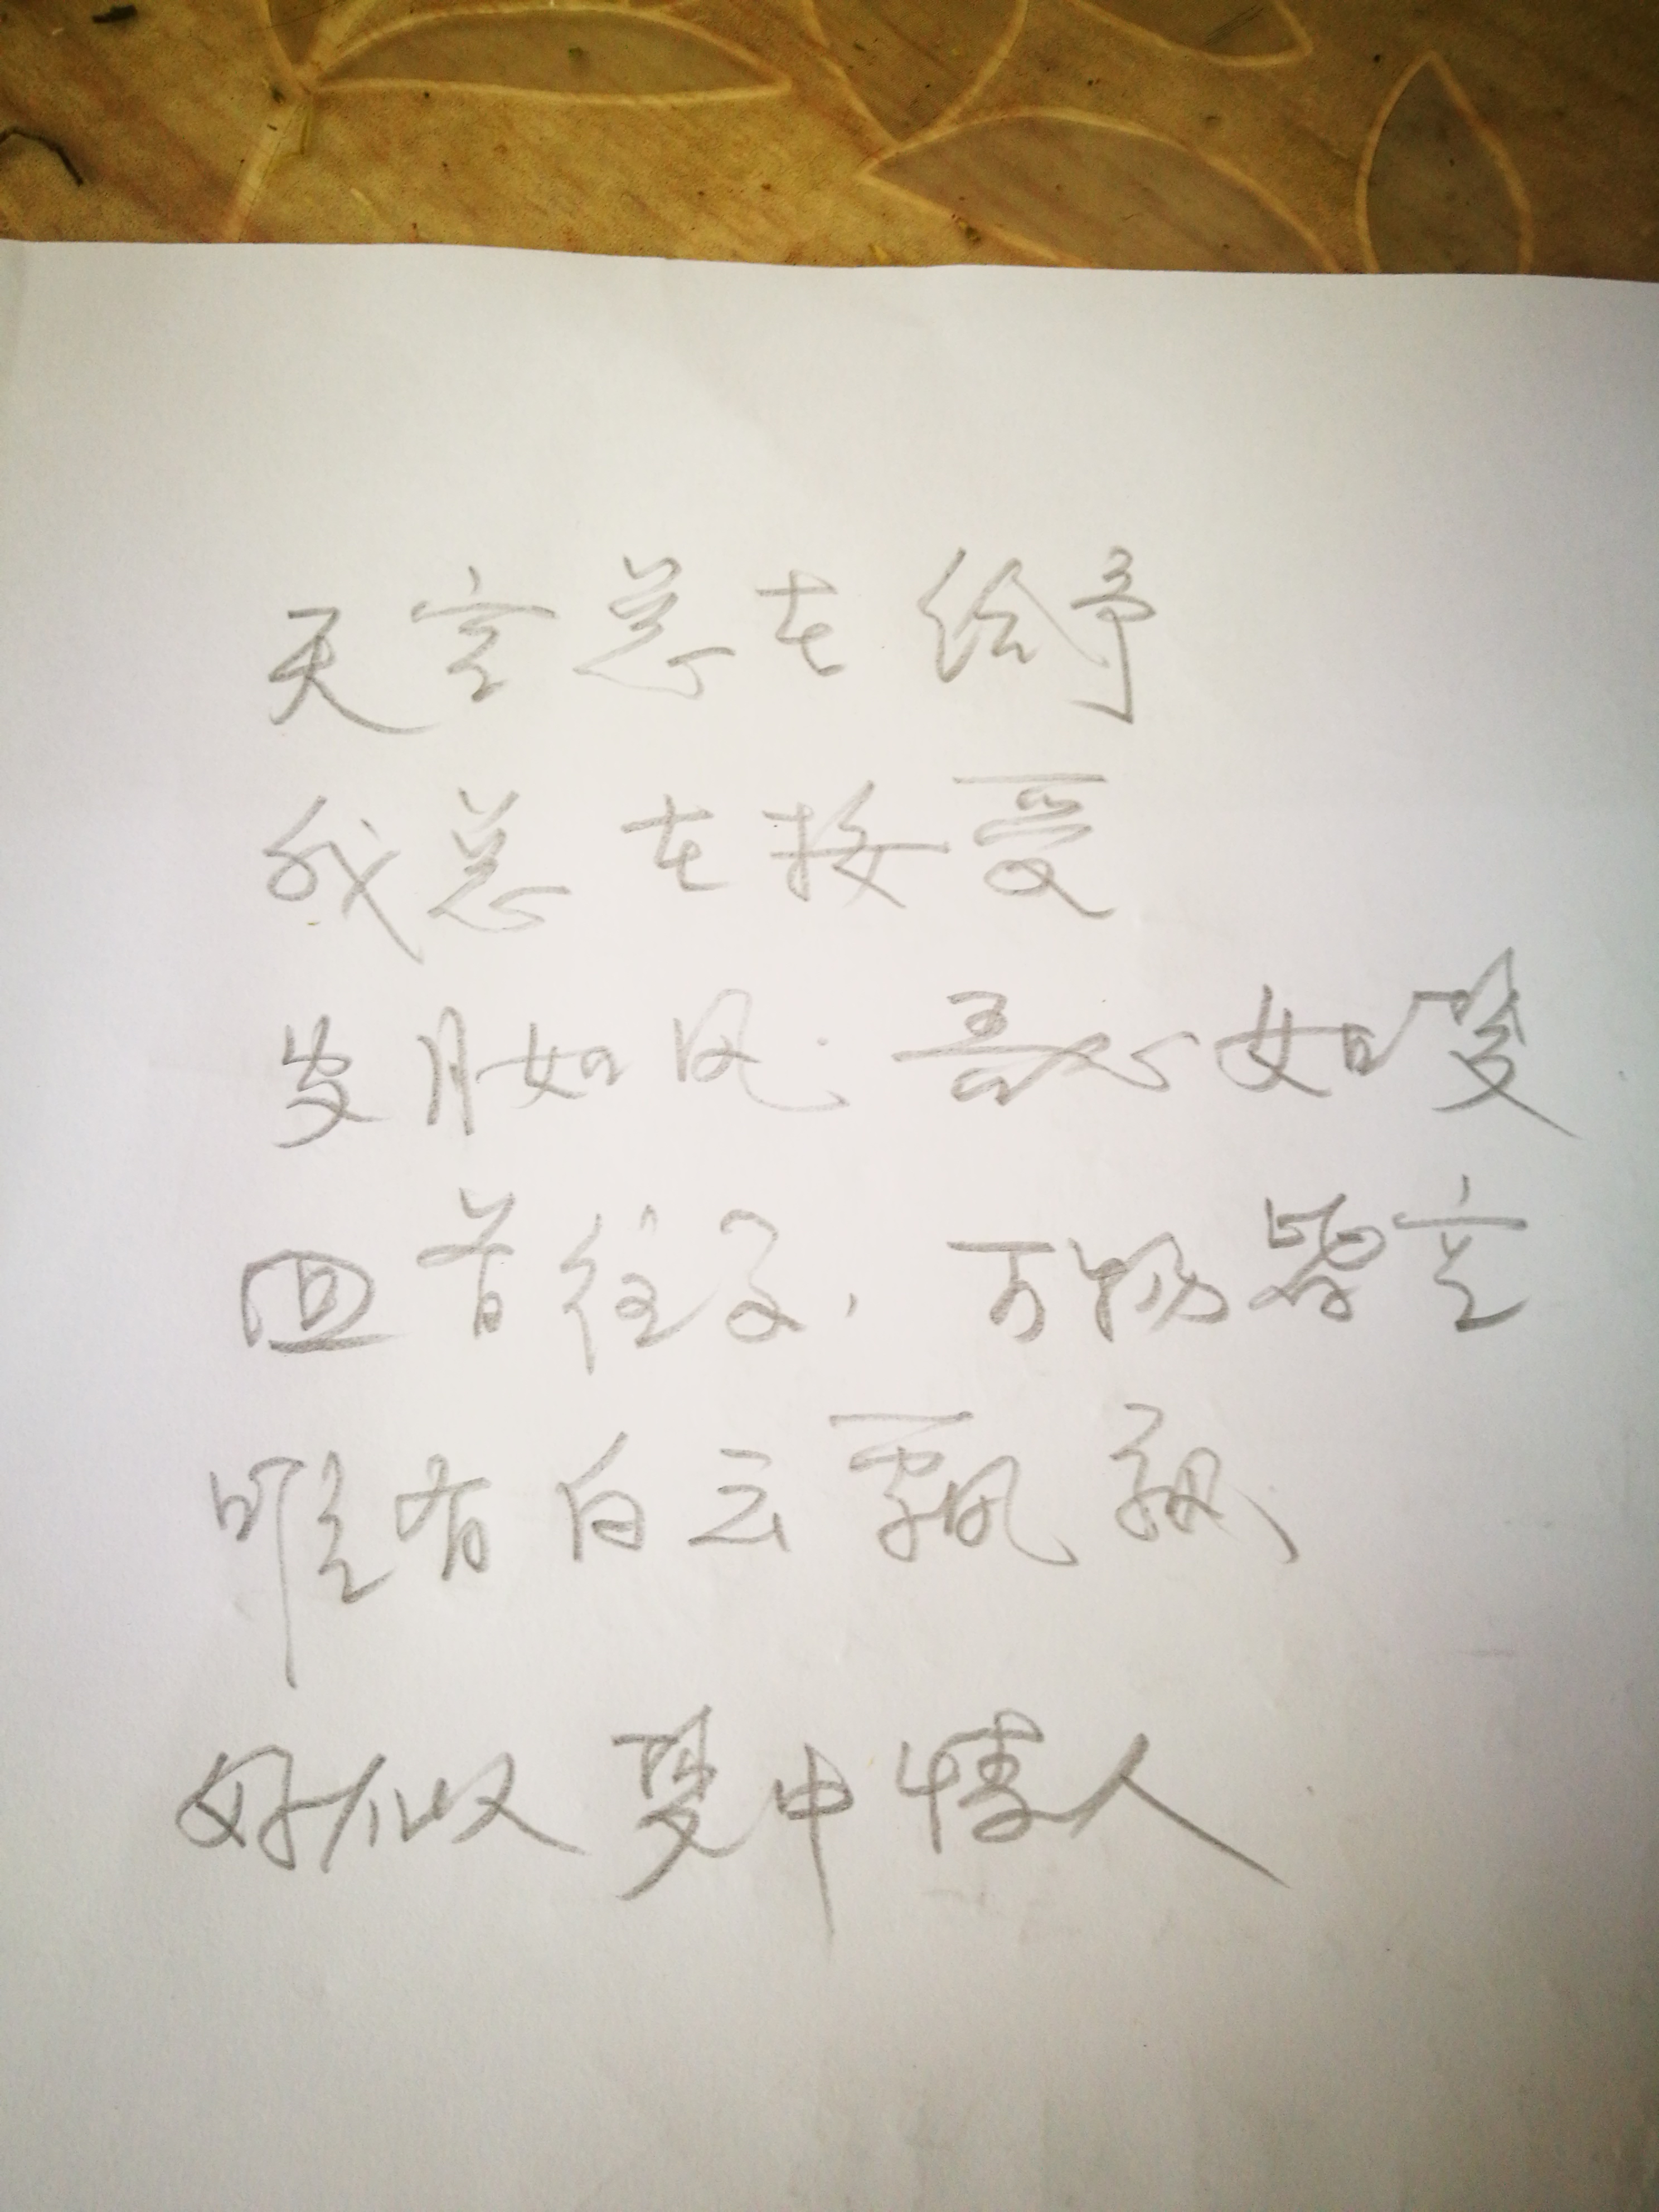 天空总在给予
我总在接受
岁月如风.吾心如梦
回首往事,万物皆空
唯有白云飘飘
好似梦中情人